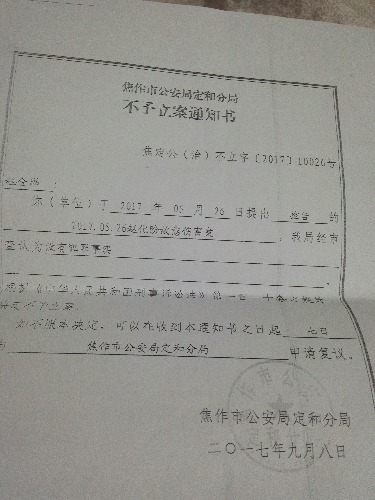 焦作市公安局定和分局
不予立案通知书
焦定公（治）不立字〔2017〕10020号
你（单位）于 2017 年 05 月 26 日提出 控告 的
2017.05.26赵化 故意伤害案 ，我局经审
查认为没有犯罪事实
根据《中华人民共和国刑事诉讼法》第一百一十条之规定，
决定不予立案。
如不服本决定，可以在收到本通知书之日起 七日
向 焦作市公安局定和分局 申请复议。
焦作市公安局定和分局
二〇一七年九月八日